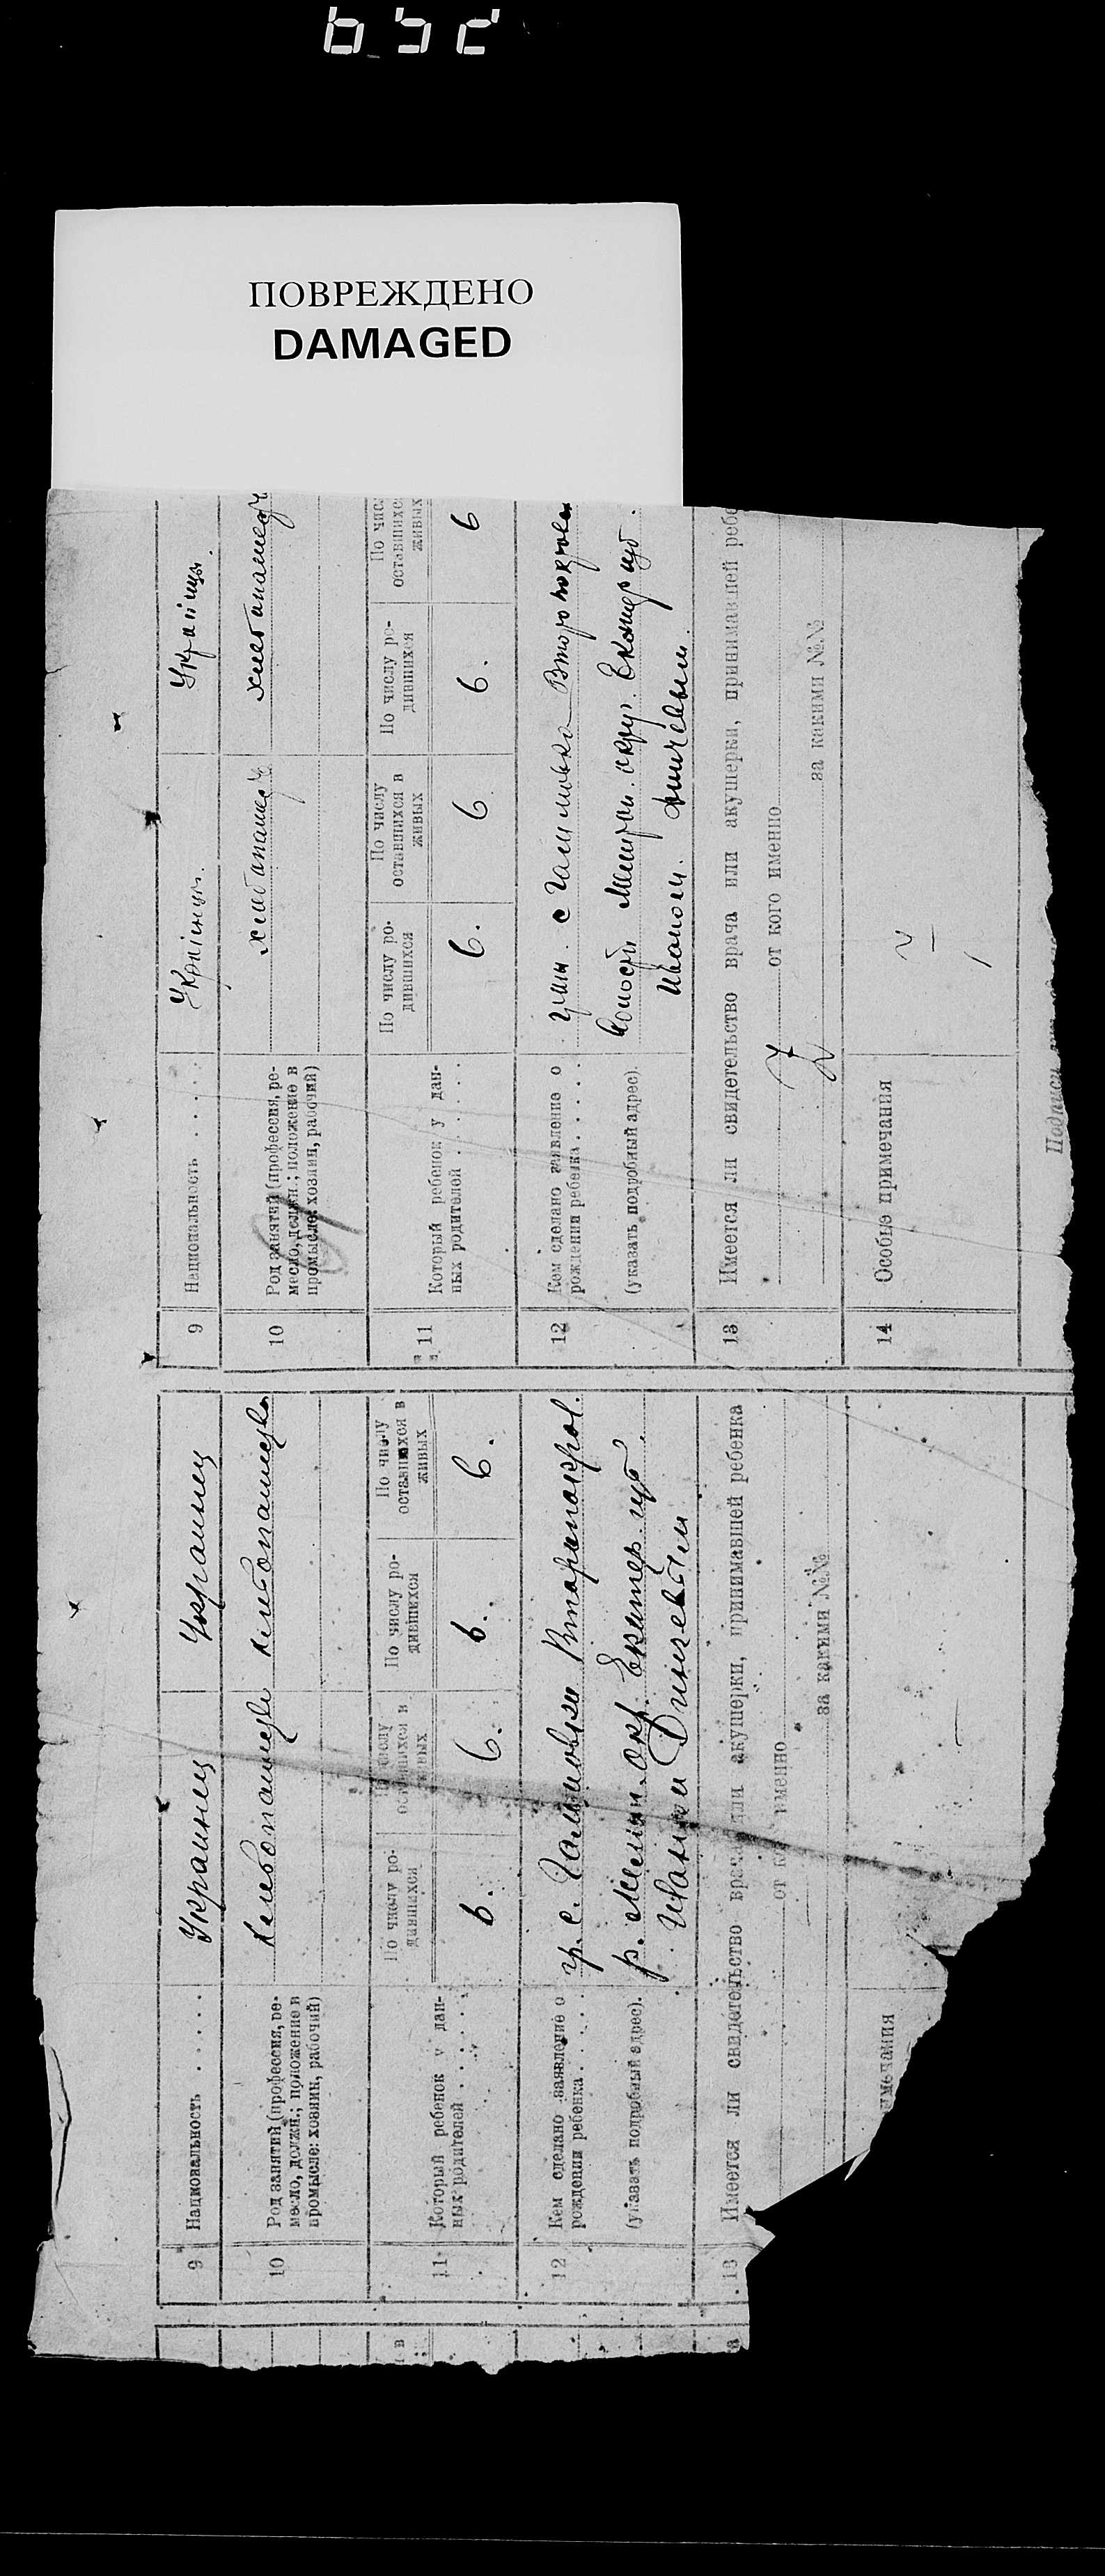 ПОВРЕЖДЕНО
DAMAGED
9 Национальность . . . . . Украинец Украинец
10 Род занятий (профессия, ре-
месло, должн.; положение в
промысле: хозяин, рабочий)
Хлебопашец Хлебопашец
11 Который ребенок у дан-
ных родителей . . . . . .
По числу ро-
дившихся
По числу
оставшихся в
живых
По числу ро-
дившихся
По числу
оставшихся в
живых
6. 6. 6. 6.
12 Кем сделано заявление о
рождении ребенка . . . . .
(указать подробный адрес).
гр. с. Вторапокров.
р. окр. Екатер. губ.
Иваном
13 Имеется ли свидетельство врача или акушерки, принимавшей ребенка
от к именно
за какими №№
имечания
9 Национальность . . . . . Українц. Українц.
10 Род занятий (профессия, ре-
месло, должн.; положение в
промысле: хозяин, рабочий)
хлебопашец хлебопашец
11 Который ребенок у дан-
ных родителей . . . . . .
По числу ро-
дившихся
По числу
оставшихся в
живых
По числу ро-
дившихся
По числ
оставшихс
живых
6. 6. 6. 6
12 Кем сделано заявление о
рождении ребенка . . . . .
(указать подробный адрес).
с
волости окру. губ.
Иваном
13 Имеется ли свидетельство врача или акушерки, принимавшей ребе
от кого именно
за какими №№
14 Особые примечания
Подписи